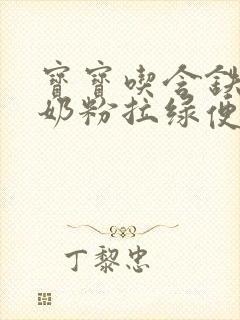 寶寶喫含鉄
奶粉拉綠便
丁黎忠